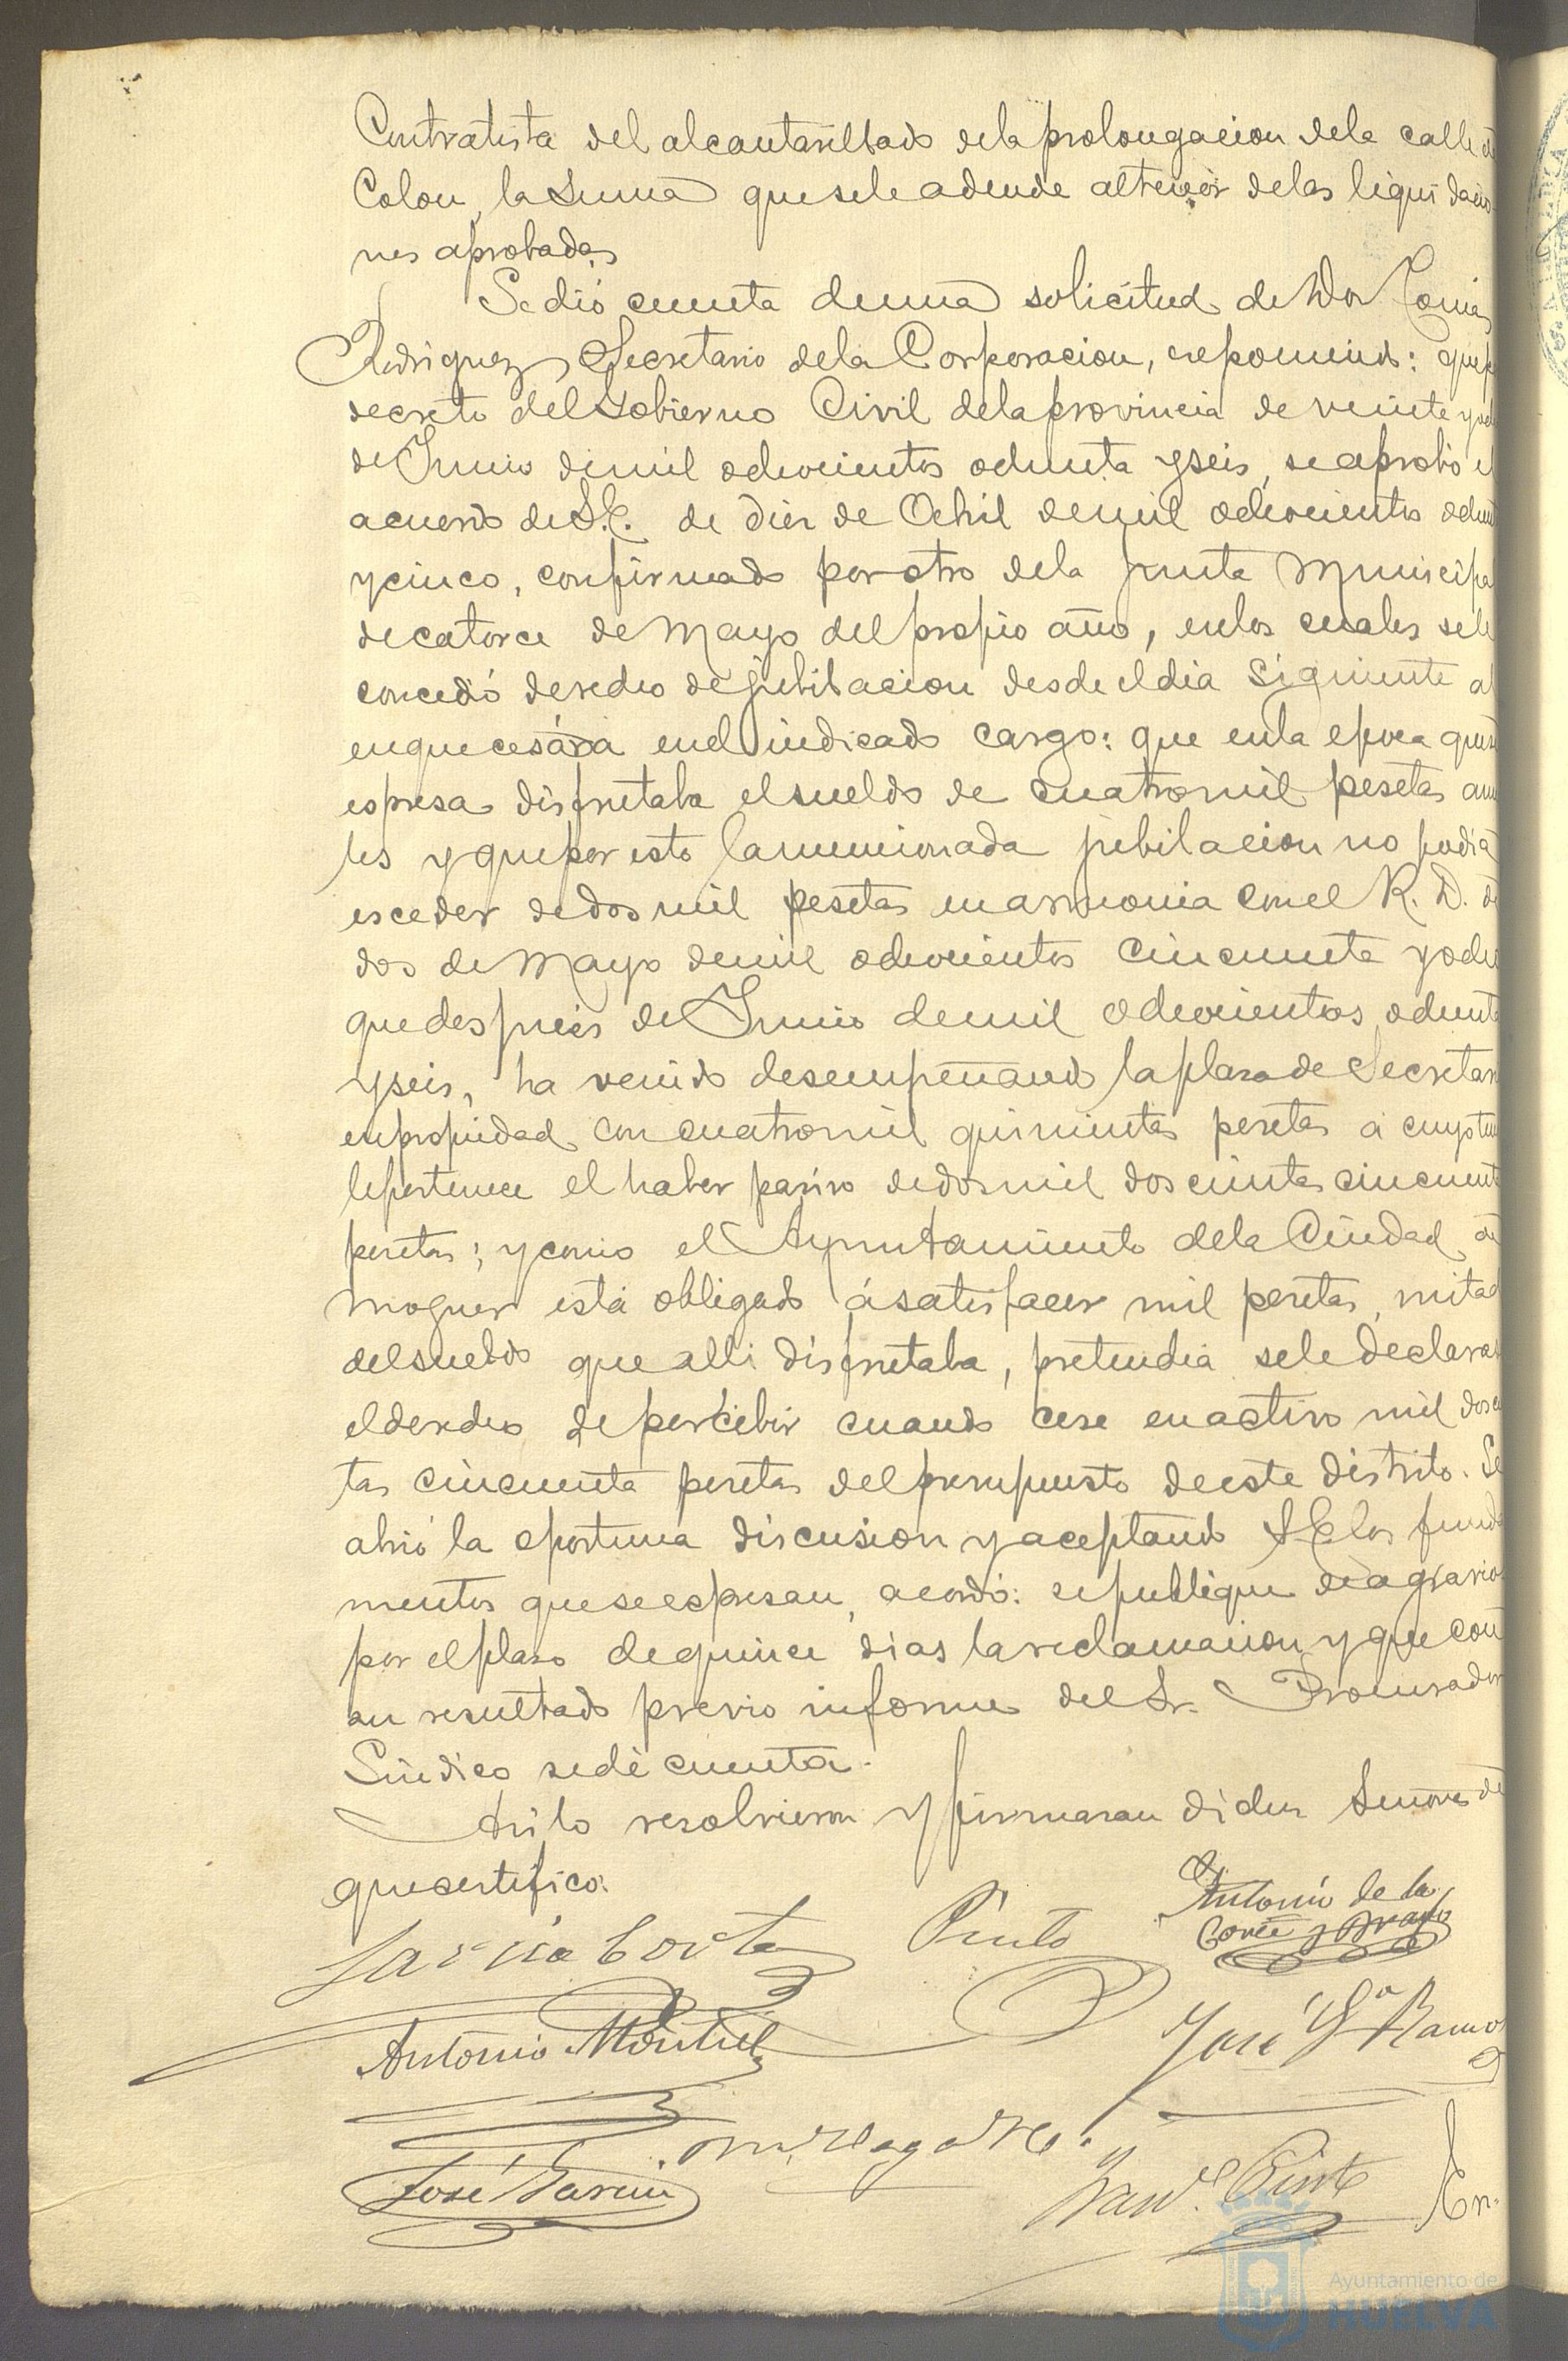 Contratista del alcantarillado dela prolongacion dela calle de
Colon, la suma que sele adeude altenor delas liquidacio
nes aprobadas
Se dió cuenta de una solicitud de Don Tomás
Rodriguez, Secretario dela Corporacion, esponiendo: que p
decreto del Gobierno Civil dela provincia de veinte y
de Junio de mil ochocientos ochenta y seis, se aprobó el
acuerdo de S.E. de diez de Abril de mil ochocientos ochen
y cinco, confirmado por otro dela Junta Municipa
de catorce de Mayo del propio año, en los cuales se le
concedió derecho de jubilacion desde el dia siguiente al
en que cesára en el indicado cargo: que en la epoca que se
espresa disfrutaba el sueldo de cuatromil pesetas anua
les y que por esto la mencionada jubilacion no podia
esceder de dos mil pesetas en armonia con el R. D. de
dos de Mayo de mil ochocientos cincuenta y ocho
que despues de Junio de mil ochocientos ochenta
y seis, ha venido desempeñando la plaza de Secretari
en propiedad con cuatromil quinientas pesetas á cuyo
le pertenece el haber pasivo de dos mil doscientas cincuenta
pesetas; y como el Ayuntamiento dela Ciudad de
Moguer está obligado á satisfacer mil pesetas, mitad
del sueldo que alli disfrutaba, pretendia se le declara
el derecho de percibir cuando cese en activo mil dosci
tas cincuenta pesetas del presupuesto de este distrito. Se
abrió la oportuna discusion y aceptando S.E. los funda
mentos que se espresan, acordó: se publique
por el plazo de quince dias la reclamacion y que con
su resultado previo informe del Sr. Procurador
Sindico se dé cuenta.
Asi lo resolvieron y firmaran dichos Señores de
que certifico.
Garcia Cortes Pinto Antonio de la
Corte y Bravo
Antonio Montiel José G.ª Ramos
José Garcia
Pinto En-
Ayuntamiento de
HUELVA